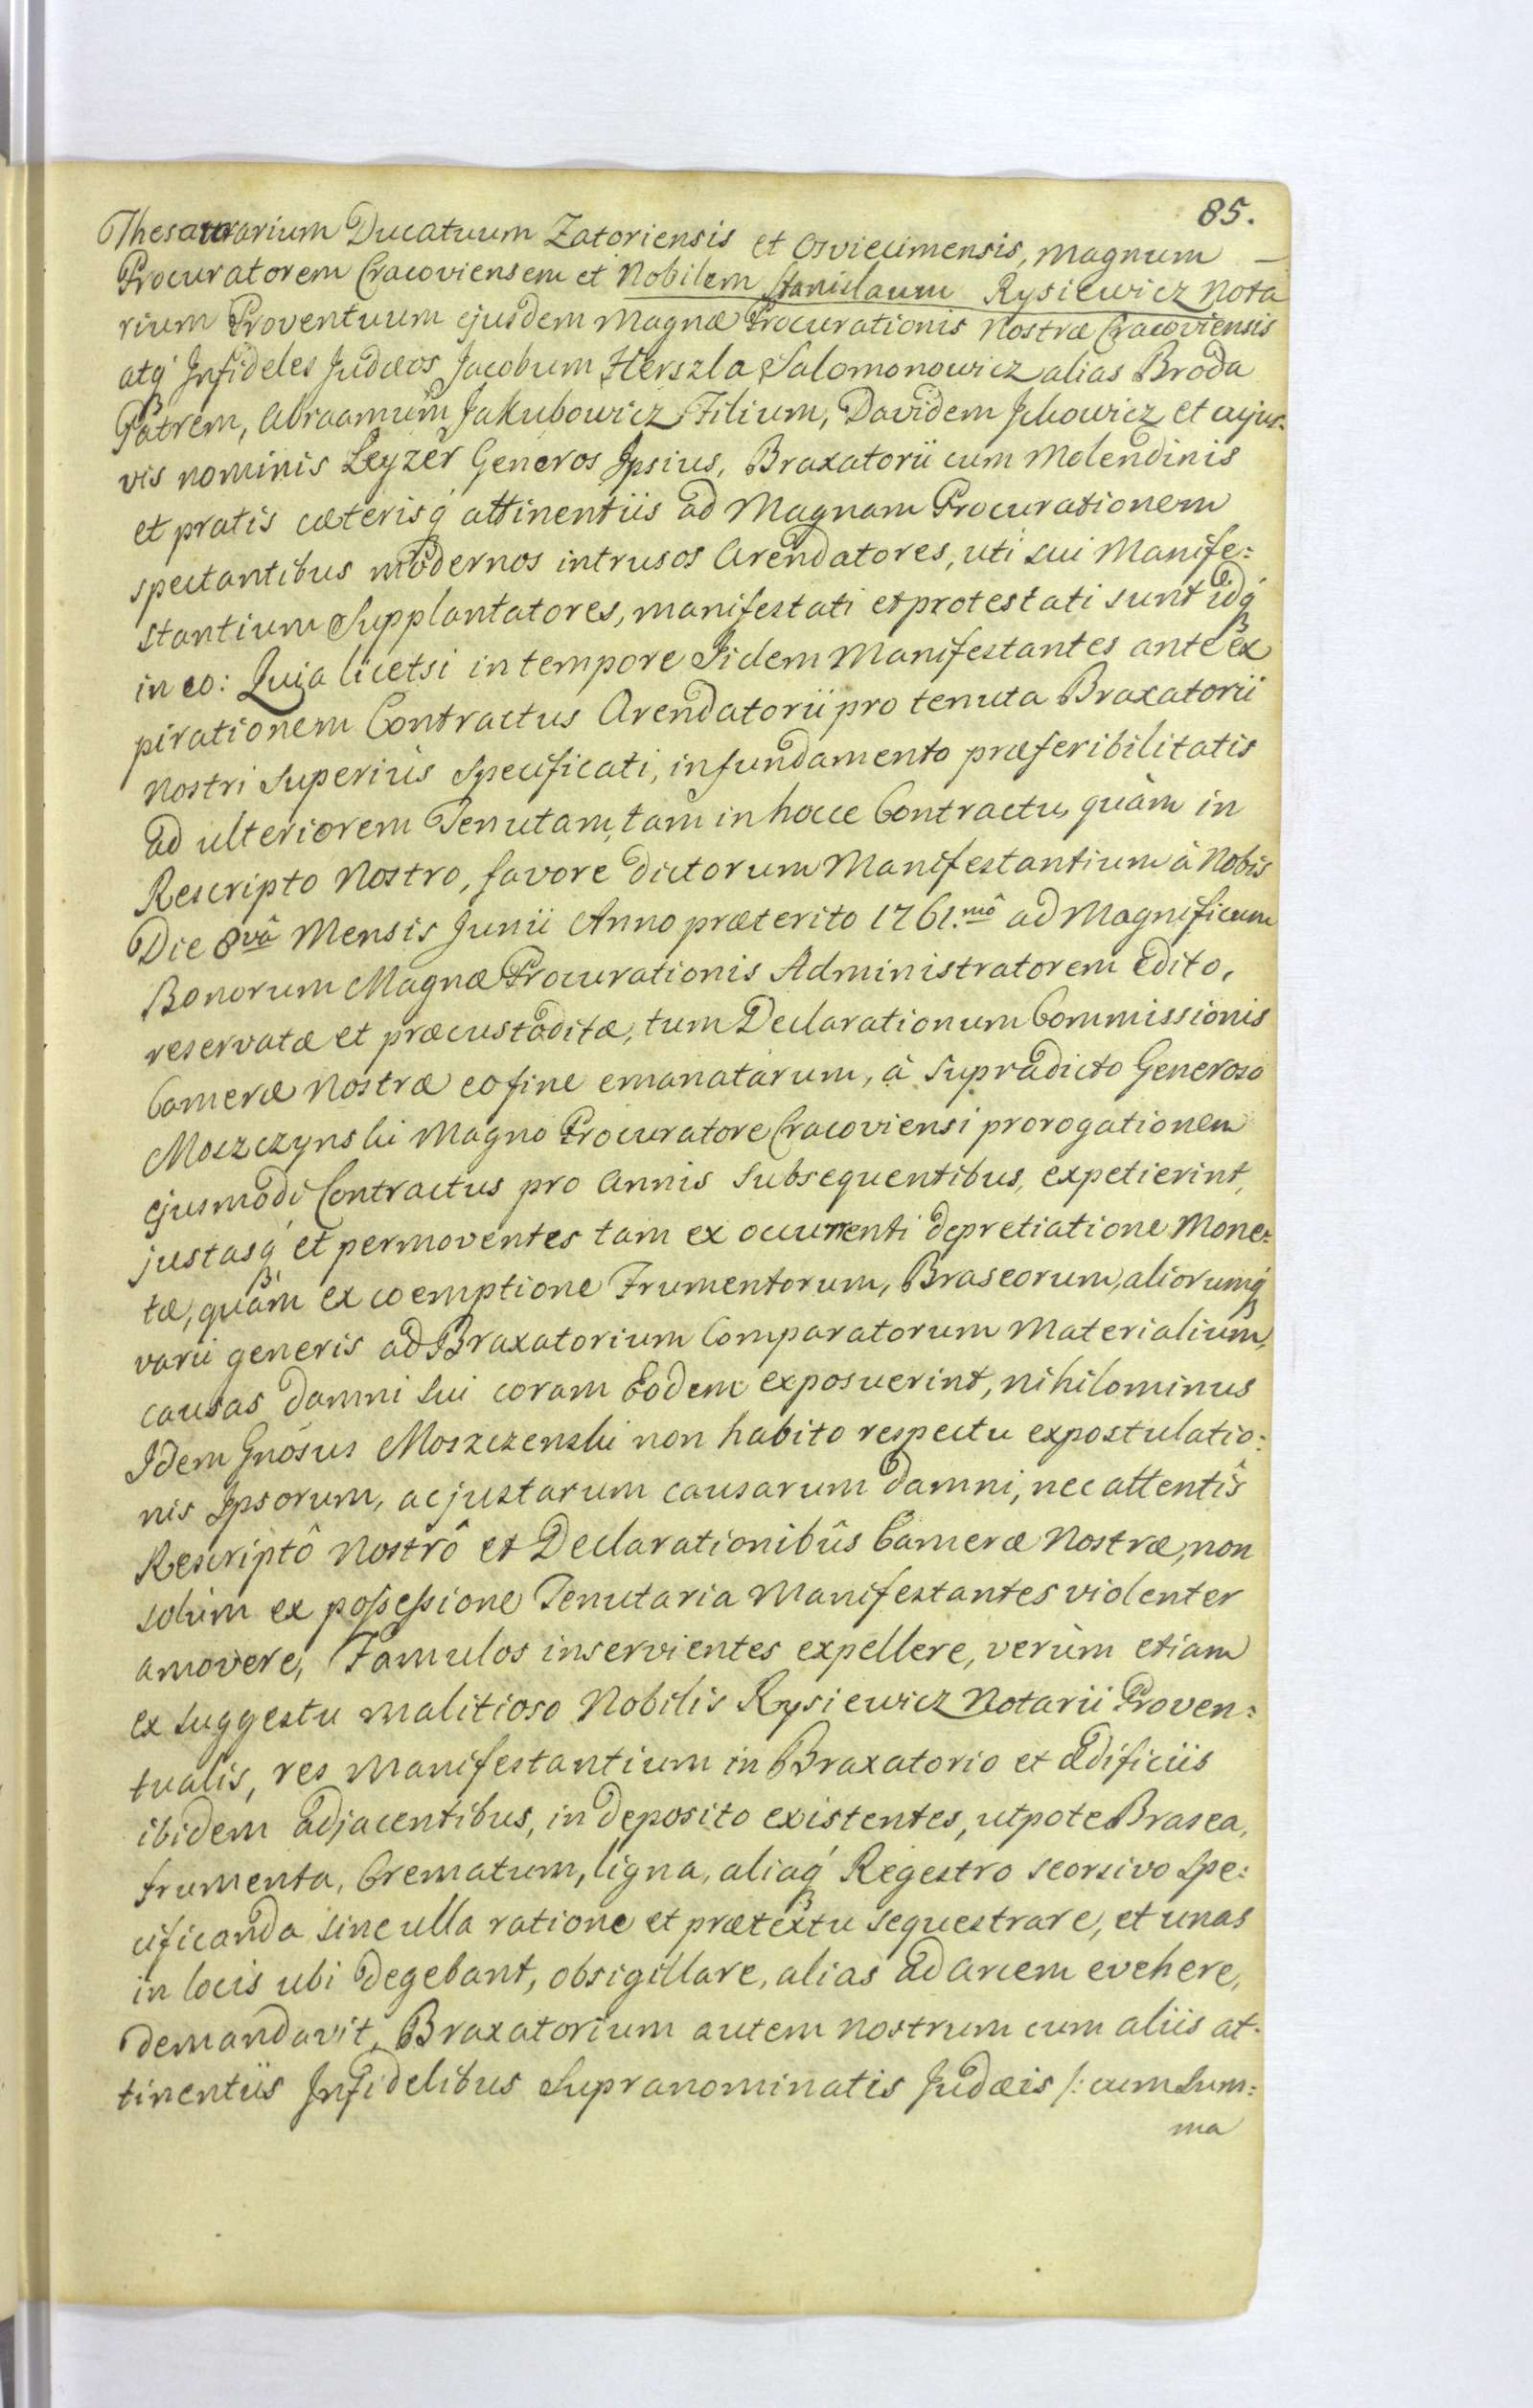 85.
Thesaurarium Ducatuum Zatoriensis et Osviecimensis, Magnum —
Procuratorem Cracoviensem et Nobilem Stanislaum Rysiewicz Nota
rium Proventuum ejusdem Magnæ Procurationis Nostræ Cracoviensis
atq́ Infideles Judæos Jacobum Herszla Salomonowicz alias Broda
Patrem, Abraamum Jakubowicz Filium, Davidem Ickowicz et cujus-
vis nominis Leyzer Generos Ipsius, Braxatorii cum Molendinis
et pratis cæterisq́ attinentiis ad Magnam Procurationem
spectantibus modernos intrusos Arendatores, uti sui Manife:
stantium Supplantatores, manifestati et protestati sunt idq́
in eo: Quia licetsi in tempore Iidem Manifestantes ante ex
pirationem Contractus Arendatorii pro tenuta Braxatorii
Nostri superiùs specificati, in fundamento præferibilitatis
ad ulteriorem Tenutam, tam in hocce Contractu, quàm in
Rescripto Nostro, favore dictorum Manifestantium à Nobis
Die 8vâ Mensis Junii Anno præterito 1761.mô ad Magnificum
Bonorum Magnæ Procurationis Administratorem edito,
reservatæ et præcustoditæ, tum Declarationum Commissionis
Cameræ Nostræ eo fine emanatarum, à supradicto Generoso
Moszczynski Magno Procuratore Cracoviensi prorogationem
ejusmodi Contractus pro Annis subsequentibus, expetierint,
justasq́ et permoventes tam ex occurrenti depretiatione Mone:
tæ, quàm ex coemptione Frumentorum, Braseorum, aliorumq́
varii generis ad Braxatorium Comparatorum Materialium,
causas damni sui coram Eodem exposuerint, nihilominus
Idem Gnosus Moszczenski non habito respectu expostulatio:
nis Ipsorum, ac justarum causarum damni, nec attentîs
Rescriptô Nostrô et Declarationibûs Cameræ Nostræ, non
solùm ex possessione Tenutaria Manifestantes violenter
amovere, Famulos inservientes expellere, verùm etiam
ex suggestu malitioso Nobilis Rysiewicz Notarii Proven:
tualis, res Manifestantium in Braxatorio et Ædificiis
ibidem adjacentibus, in deposito existentes, utpote Brasea,
frumenta, Crematum, ligna, aliaq́ Regestro seorsivo spe:
cificanda sine ulla ratione et prætextu sequestrare, et unas
in locis ubi degebant, obsigillare, alias ad arcem evehere,
demandavit, Braxatorium autem nostrum cum aliis at-
tinentiis Infidelibus supranominatis Judæis /: cum Sum:
ma